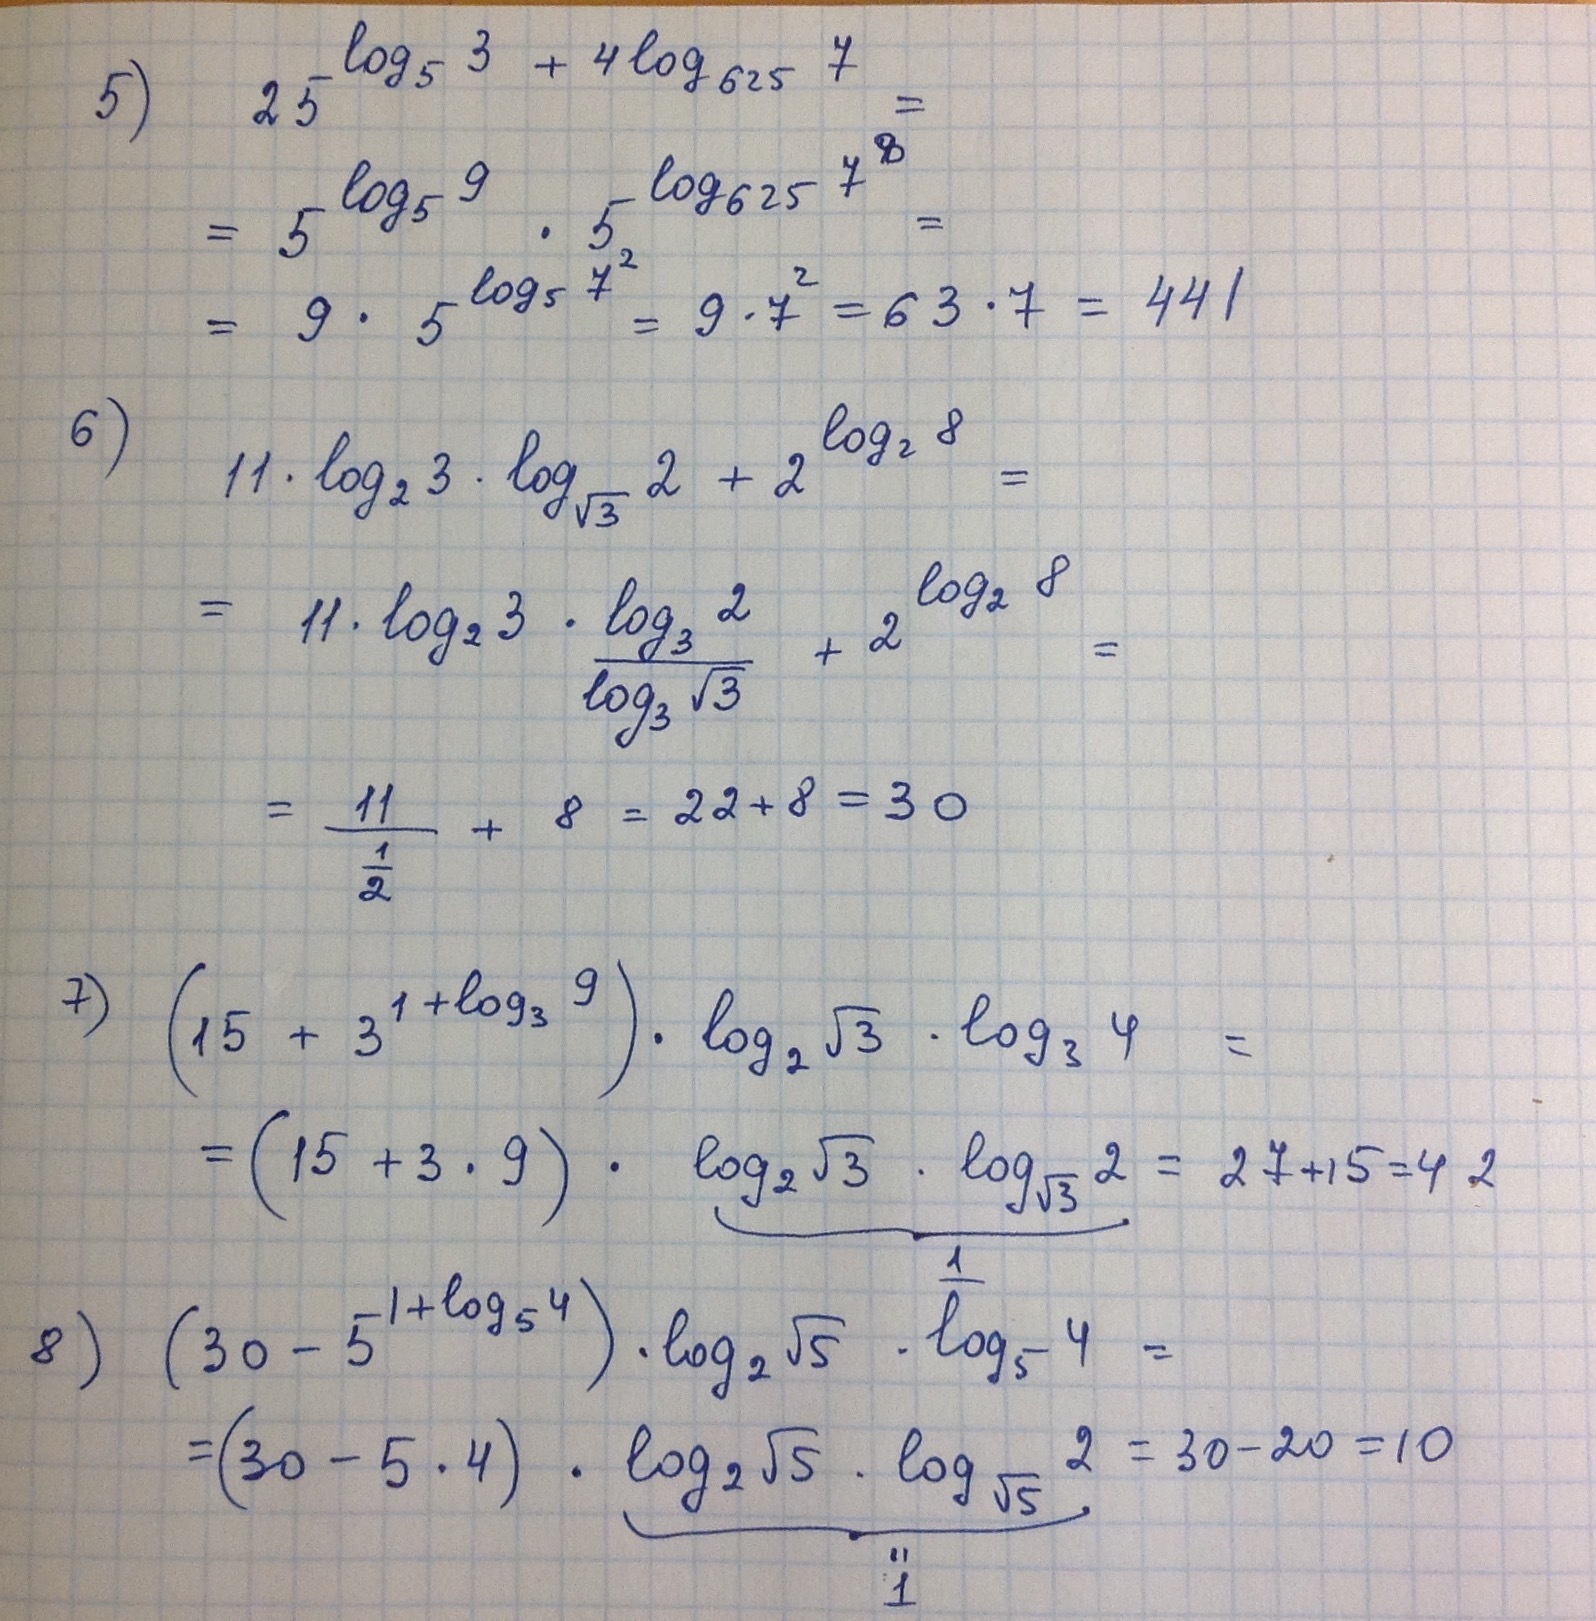 5) 25^{log_5 3 + 4 log_{625} 7} =
= 5^{log_5 9} · 5^{log_{625} 7^8} =
= 9 · 5^{log_5 7^2} = 9 · 7^2 = 63 · 7 = 441
6)
11 · log_2 3 · log_{√3} 2 + 2^{log_2 8} =
= 11 · log_2 3 · \frac{log_3 2}{log_3 √3} + 2^{log_2 8} =
= \frac{11}{\frac{1}{2}} + 8 = 22 + 8 = 30
7) (15 + 3^{1 + log_3 9}) · log_2 √3 · log_3 4 =
= (15 + 3 · 9) · log_2 √3 · log_{√3} 2 = 27 + 15 = 42
1
8) (30 − 5^{1 + log_5 4}) · log_2 √5 · log_5 4 =
= (30 − 5 · 4) · log_2 √5 · log_{√5} 2 = 30 − 20 = 10
"
1